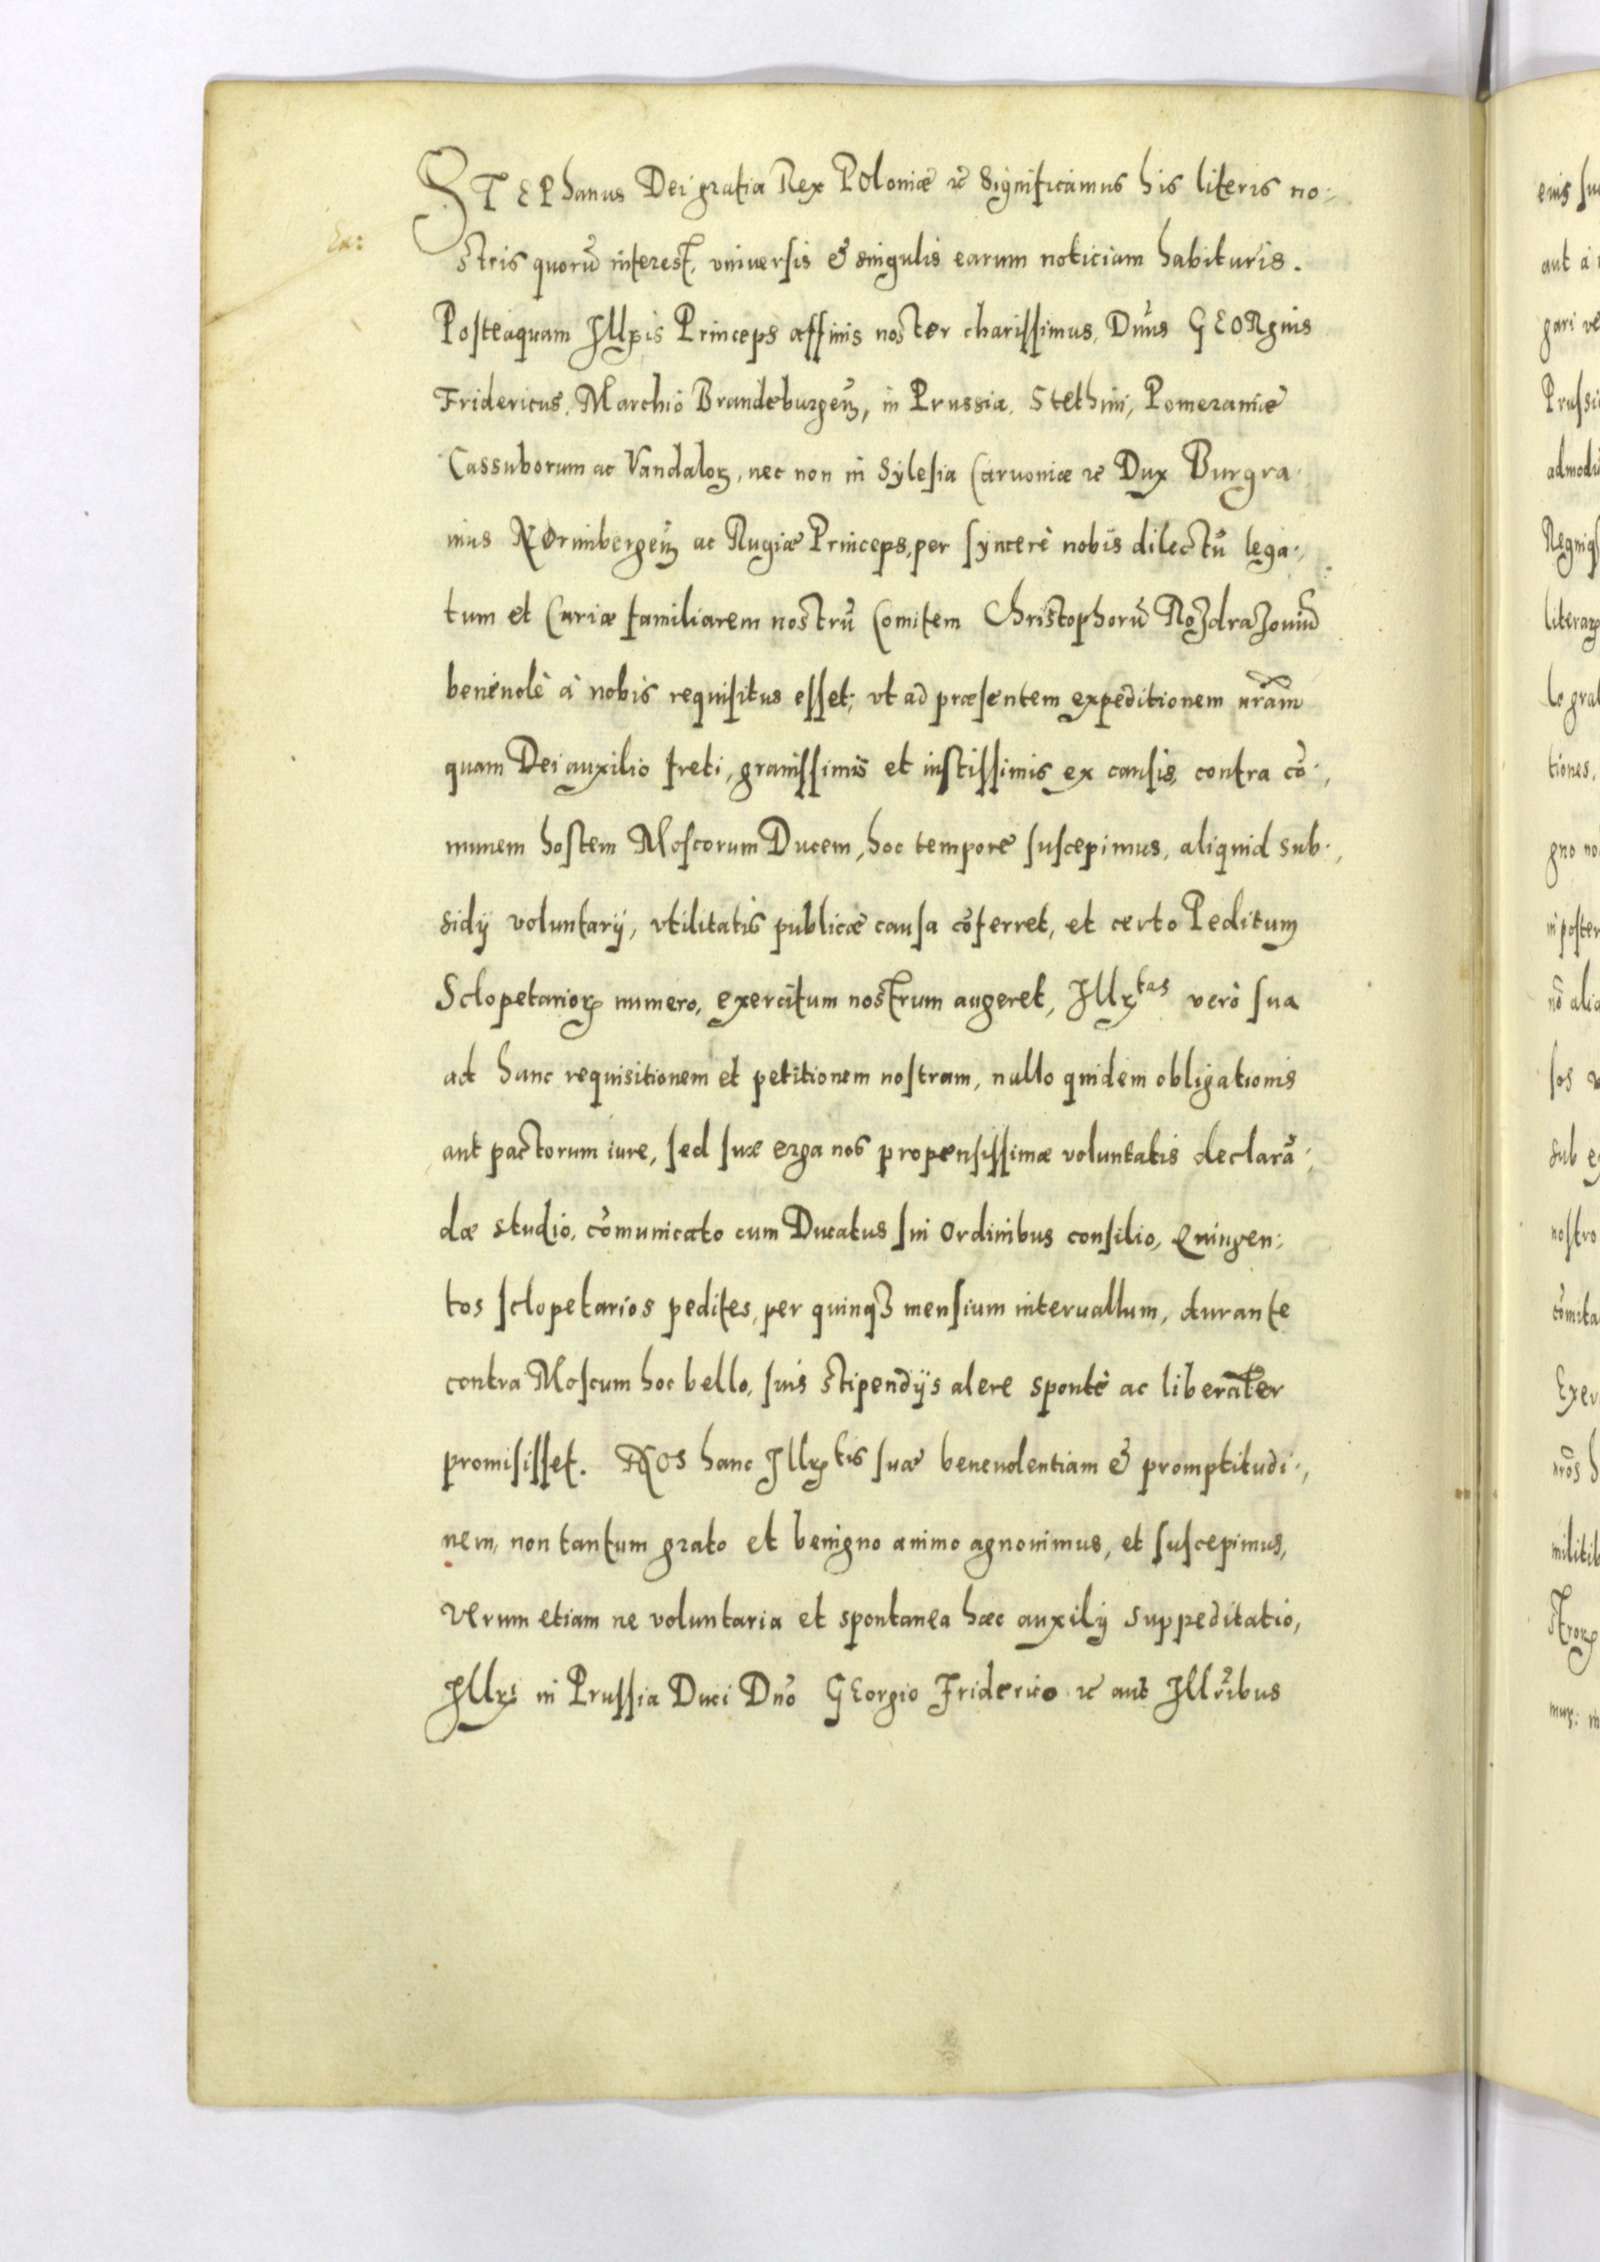 STEPhanus Dei gratia Rex Poloniæ ꝛc Significamus his literis no:
Ex:
stris quorũ interest, vniuersis & singulis earum noticiam habituris.
Posteaquam Illꝝis Princeps affinis noster charissimus, Dn̄us GEORgius
Fridericus, Marchio Brandeburgeñ, in Prussia, Stethini, Pomeraniæ
Cassuborum ac Vandaloꝝ, nec non in Sylesia Caruoniæ ꝛc Dux Burgra-
uius NOrinbergeñ ac Rugiæ Princeps, per syncerè nobis dilectũ lega-
tum et Curiæ familiarem nostrũ Comitem Christophorũ Rozdrazouiũ
beneuolè à nobis requisitus esset, vt ad præsentem expeditionem nr̃am
quam Dei auxilio freti, grauissimis et iustissimis ex causis, contra cõ-
munem hostem Moscorum Ducem, hoc tempore suscepimus, aliquid sub-
sidij voluntarij, vtilitatis publicæ causa cõferret, et certo Peditum
Sclopetarioꝝ numero, exercitum nostrum augeret, Illꝝtas verò sua
ad hanc requisitionem et petitionem nostram, nullo quidem obligationis
aut pactorum iure, sed suæ erga nos propensissimæ voluntatis declarã-
dæ studio, cõmunicato cum Ducatus sui Ordinibus consilio, Quingen-
tos sclopetarios pedites, per quinqȝ mensium interuallum, durante
contra Moscum hoc bello, suis stipendijs alere spontè ac liberal̃ter
promisisset. NOs hanc Illꝝtis suæ beneuolentiam & promptitudi-
nem, non tantum grato et benigno animo agnouimus, et suscepimus,
Verum etiam ne voluntaria et spontanea hæc auxilij suppeditatio,
Illꝝi in Prussia Duci Dn̄o GEorgio Friderico ꝛc aut Illr̃ibus